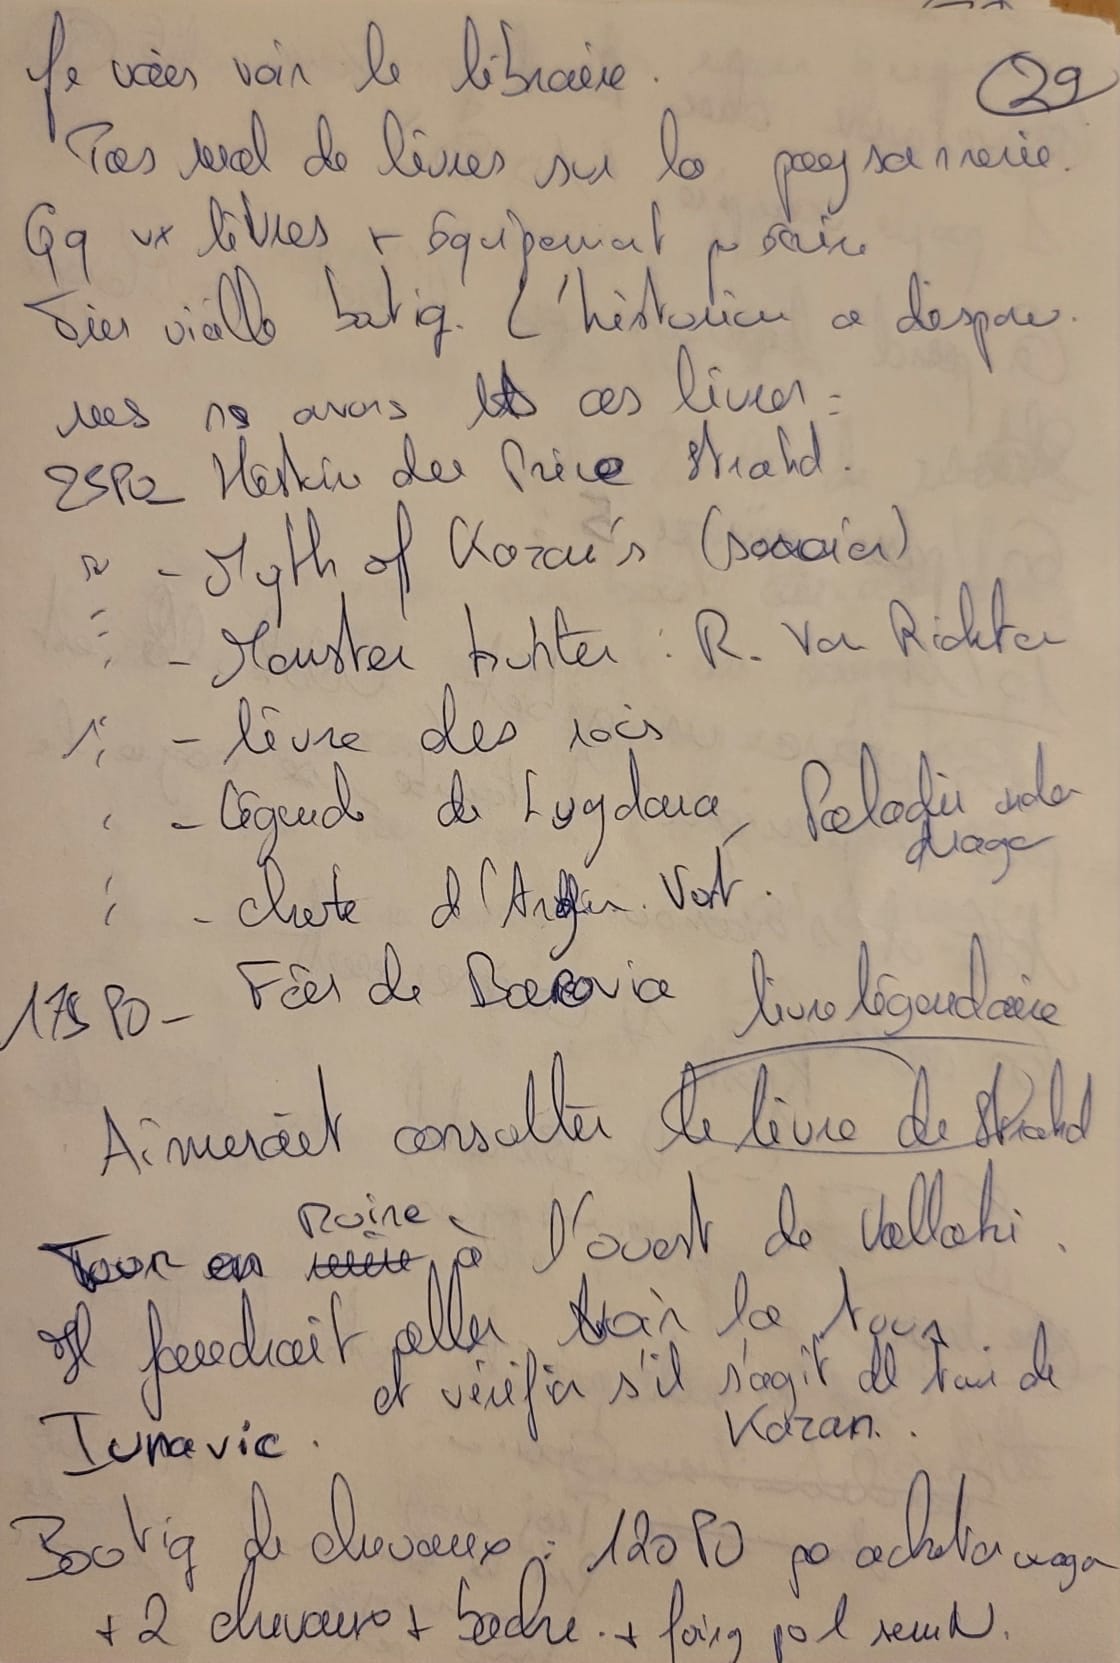 Je vais voir le libraire.
29
Pas mal de livres sur la paysannerie.
Qq vx livres + équipement p faire
Très vieille boutiq. L'historien a disparu.
mais ns avons ts ces livres :
25PO Histoire du Prince Strahd.
" - Myth of Kazan's (sorcier)
" - Monster hunter : R. Van Richten
" - livre des rois
" - légende de Lugdana, Paladin
" - chute d'Argen. Vost.
175 PO - Fées de Barovia
livre légendaire
Aimerait consulter le livre de Strahd
Ruine
Tour en à l'ouest de Vallaki.
Il faudrait aller voir la tour
et vérifier s'il s'agit de la tour de
Kazan.
Boutiq de chevaux : 120 PO po acheter
+ 2 chevaux + bâche. + foin